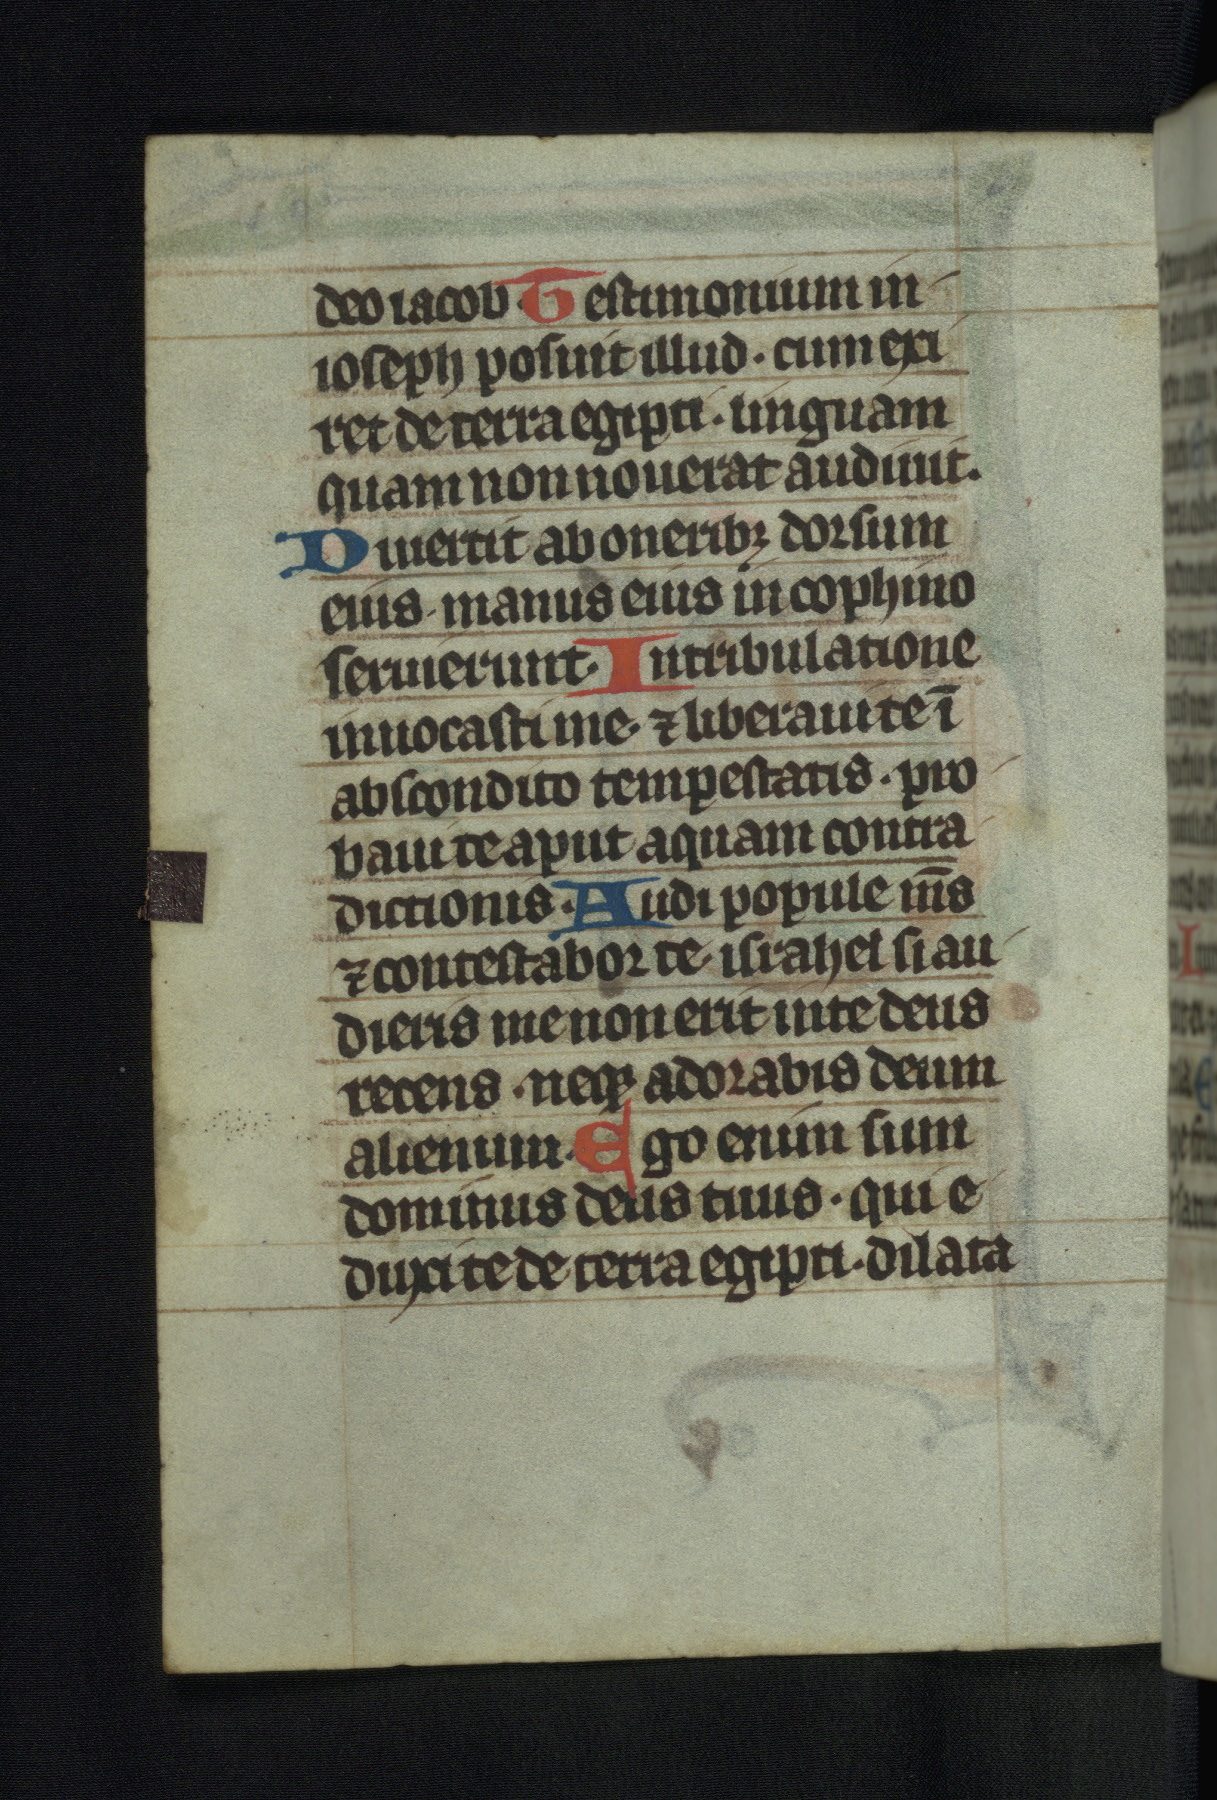 deo iacob. Testimonium in
ioseph posuit illud. cum exi
ret de terra egipti. linguam
quam non nouerat audiuit.
Diuertit ab oneribꝫ dorsum
eius. manus eius in cophino
seruierunt. In tribulatione
inuocasti me. ⁊ liberaui te ī
abscondito tempestatis. pro
baui te aput aquam contra
dictionis. Audi popule m̄s
⁊ contestabor te. israhel si au
dieris me non erit in te deus
recens. neqꝫ adorabis deum
alienum. Ego enim sum
dominus deus tuus. qui e
duxi te de terra egipti. dilata